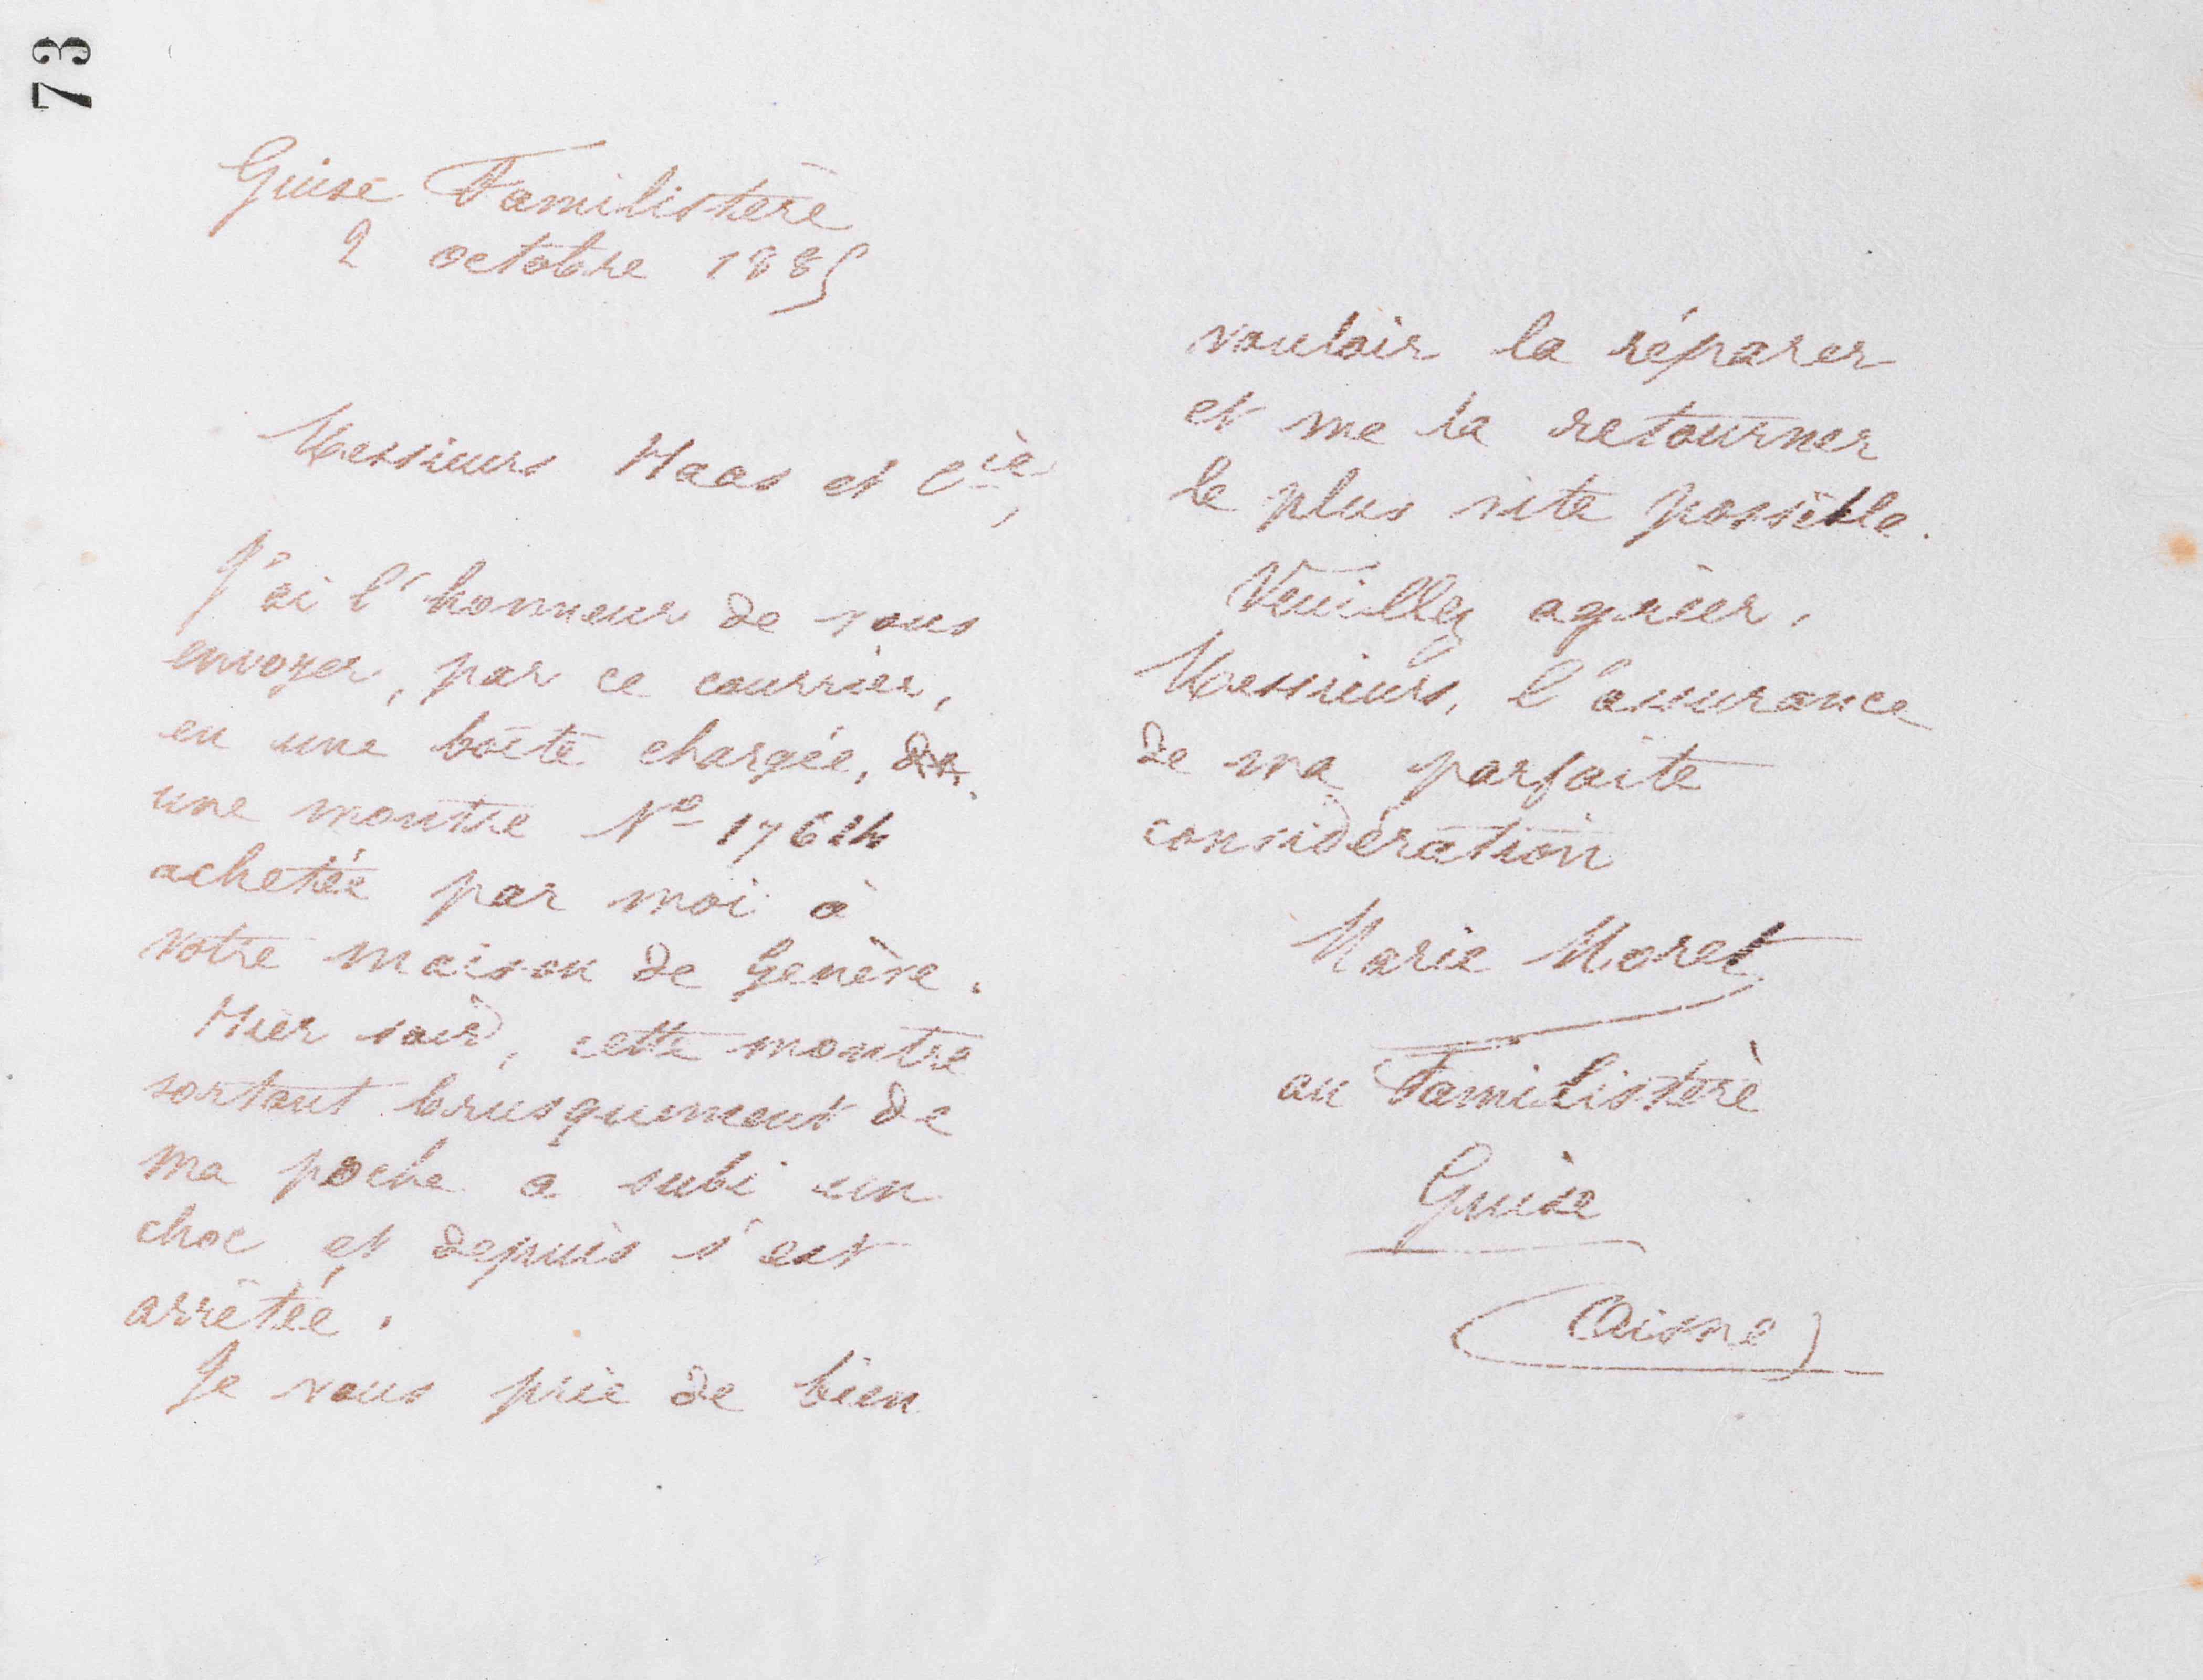 73
Guise Familistère
2 octobre 1885
Messieurs Haas et Cie,
J'ai l'honneur de vous
envoyer, par ce courrier,
en une boîte chargée,
une montre No
achetée par moi à
votre maison de Genève.
Hier soir, cette montre
sortant brusquement de
ma poche a subi un
choc et depuis s'est
arrêtée.
Je vous prie de bien
vouloir la réparer
et me la retourner
le plus vite possible.
Veuillez agréer,
Messieurs, l'assurance
de ma parfaite
considération
Marie Moret
au Familistère
Guise
(Aisne)